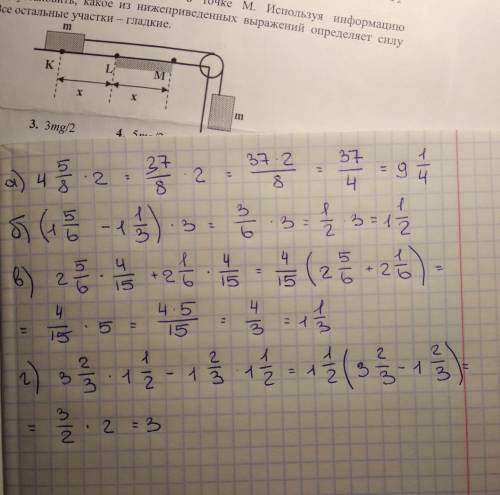 точке М. Используя информацию
установить, какое из нижеприведенных выражений определяет силу
Все остальные участки – гладкие.
m
K
L
M
x
x
m
3. 3mg/2
4.
а) 4 5/8 · 2 = 37/8 · 2 = 37·2/8 = 37/4 = 9 1/4
б) (1 5/6 - 1 1/3) · 3 = 3/6 · 3 = 1/2 · 3 = 1 1/2
в) 2 5/6 · 4/15 + 2 1/6 · 4/15 = 4/15 (2 5/6 + 2 1/6) =
= 4/15 · 5 = 4·5/15 = 4/3 = 1 1/3
г) 3 2/3 · 1 1/2 - 1 2/3 · 1 1/2 = 1 1/2 (3 2/3 - 1 2/3) =
= 3/2 · 2 = 3